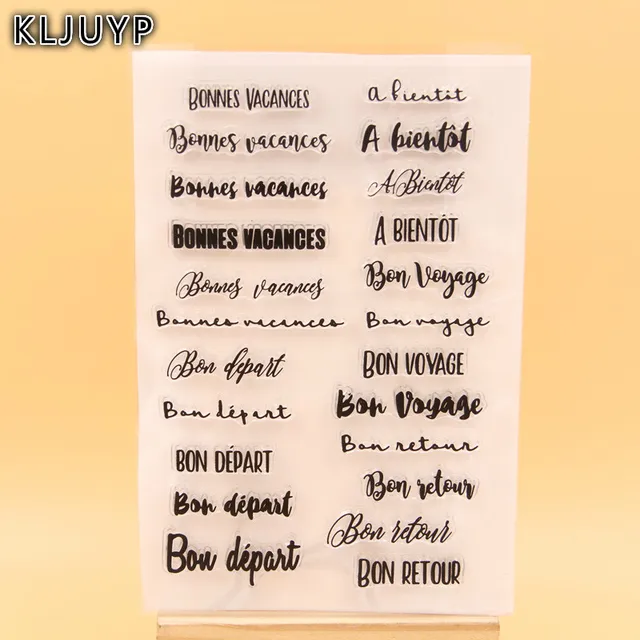 KLJUYP
Bonnes Vacances
Bonnes vacances
Bonnes vacances
Bonnes vacances
Bonnes vacances
Bonnes vacances
Bon départ
Bon départ
BON DÉPART
Bon départ
Bon départ
A bientôt
A bientôt
A Bientôt
A BIENTÔT
Bon Voyage
Bon voyage
BON VOYAGE
Bon Voyage
Bon retour
Bon retour
Bon retour
BON RETOUR